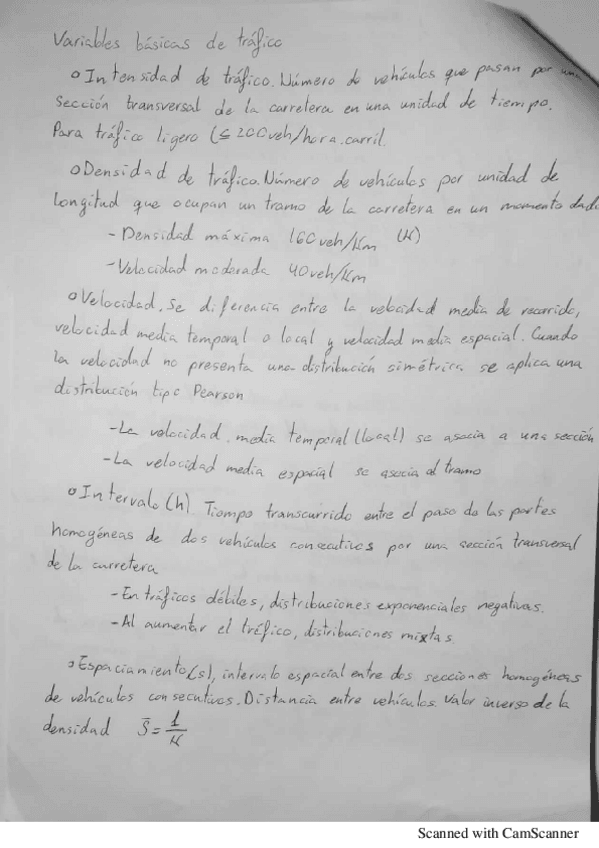 Variables básicas de tráfico
o Intensidad de tráfico. Número de vehículos que pasan por una
sección transversal de la carretera en una unidad de tiempo.
Para tráfico ligero (≤ 200veh/hora.carril.
o Densidad de tráfico. Número de vehículos por unidad de
longitud que ocupan un tramo de la carretera en un momento dado
- Densidad máxima 160veh/Km (K)
- Velocidad moderada 40veh/Km
o Velocidad. Se diferencia entre la velocidad media de recorrido,
velocidad media temporal o local y velocidad media espacial. Cuando
la velocidad no presenta una distribución simétrica se aplica una
distribución tipo Pearson
- La velocidad media temporal (local) se asocia a una sección
- La velocidad media espacial se asocia al tramo
o Intervalo (h). Tiempo transcurrido entre el paso de las partes
homogéneas de dos vehículos consecutivos por una sección transversal
de la carretera
- En tráficos débiles, distribuciones exponenciales negativas.
- Al aumentar el tráfico, distribuciones mixtas.
o Espaciamiento (s), intervalo espacial entre dos secciones homogéneas
de vehículos consecutivos. Distancia entre vehículos. Valor inverso de la
densidad s̄ = 1/K
Scanned with CamScanner